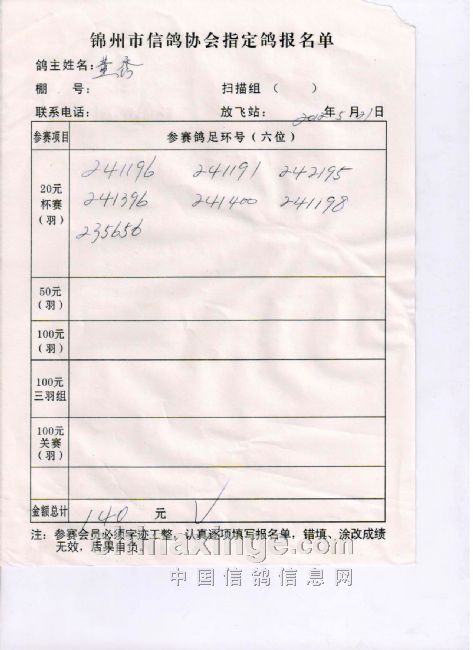 锦州市信鸽协会指定鸽报名单
鸽主姓名:董秀
棚 号: 扫描组( )
联系电话: 放飞站: 2012年5月21日
参赛项目 参赛鸽足环号(六位)
20元
杯赛
(羽)
241196 241191 242195
241396 241400 241198
235656
50元
(羽)
100元
(羽)
100元
三羽组
100元
关赛
(羽)
金额总计 140 元 √
注: 参赛会员必须字迹工整、认真逐项填写报名单, 错填、涂改成绩
无效, 后果自负。
chinaxinge.com
中国信鸽信息网